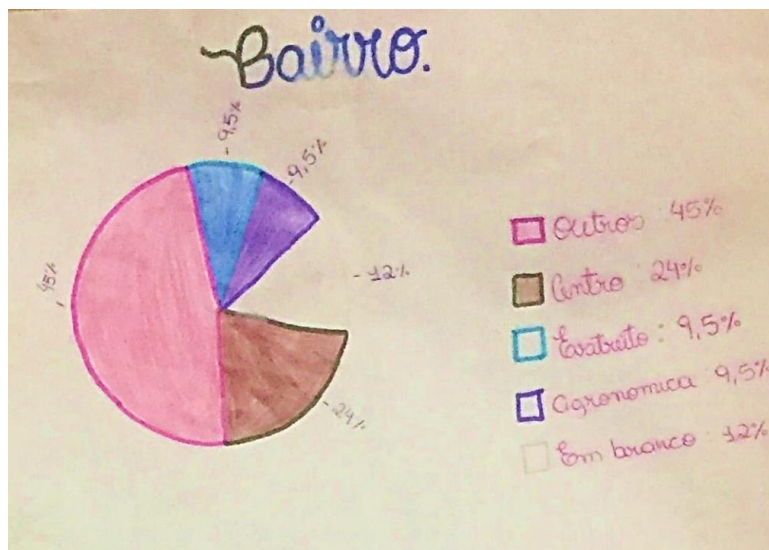 Bairro.
- 9,5%
- 9,5%
- 12%
45%
- 24%
Outros 45%
Centro 24%
: 9,5%
Agronomica 9,5%
Em branco 12%